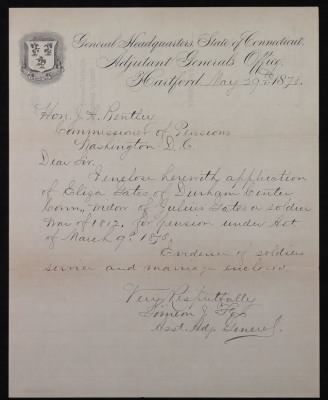 General Headquarters, State of Connecticut.
Adjutant General's Office,
Hartford May 29th 1878.
Hon. J. A. Bentley
Commissioner of Pensions
Washington D.C.
Dear Sir.
I enclose herewith application
of Eliza Gates of Durham Center
Conn., widow of Julius Gates a soldier
War of 1812, for pension under Act
of March 9th 1878.
Evidence of soldiers
service and marriage enclosed
Very Respectfully
Simeon J. Fox
Asst. Adj. General.